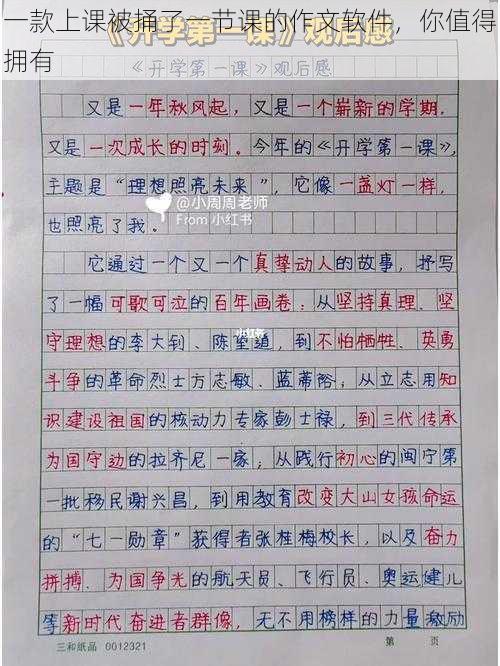 一款上课被捅了一节课的作文软件，你值得
拥有
《开学第一课》观后感
《开学第一课》观后感
又是一年秋风起，又是一个崭新的学期，
又是一次成长的时刻。今年的《开学第一课》，
主题是“理想照亮未来”，它像一盏灯一样，
也照亮了我。
@小周周老师
From 小红书
它通过一个又一个真挚动人的故事，抒写
了一幅可歌可泣的百年画卷：从坚持真理、坚
小红书
守理想的李大钊、陈望道，到不怕牺牲、英勇
斗争的革命烈士方志敏、蓝蒂裕；从立志用知
识建设祖国的核动力专家彭士禄，到三代传承
为国守边的拉齐尼一家；从践行初心的闽宁第
一批移民谢兴昌，到用教育改变大山女孩命运
的“七一勋章”获得者张桂梅校长，以及奋力
拼搏、为国争光的航天员、飞行员、奥运健儿
等新时代奋进者群像，无不用榜样的力量激励
三和纸品 0012321
第 页